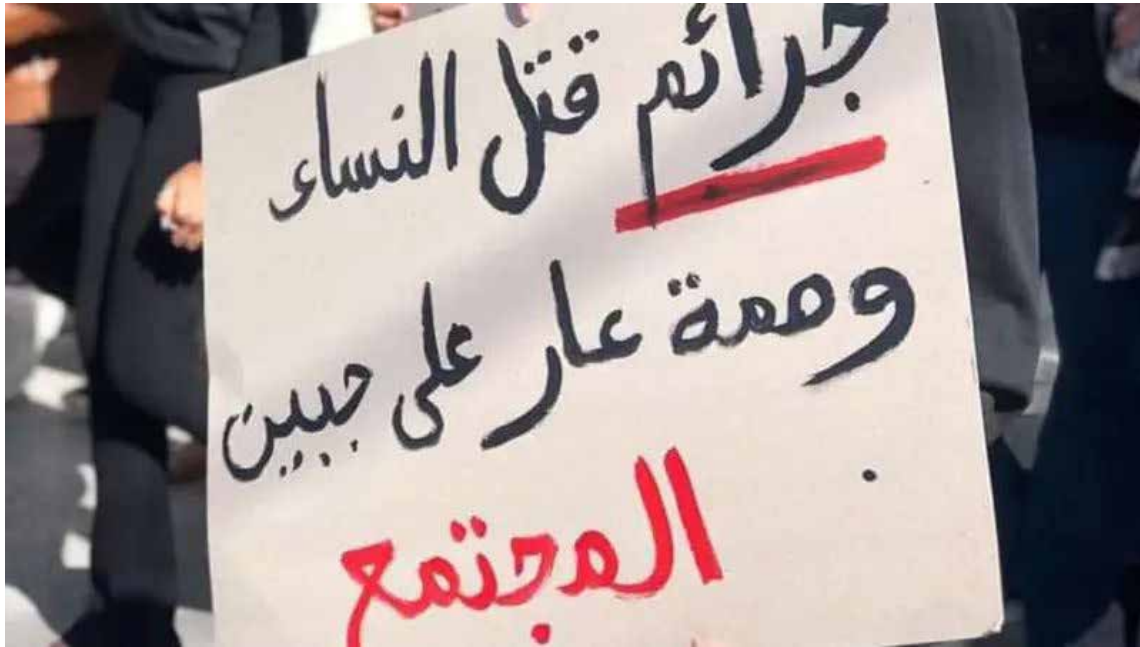 جرائم قتل النساء
وصمة عار على جبين
المجتمع